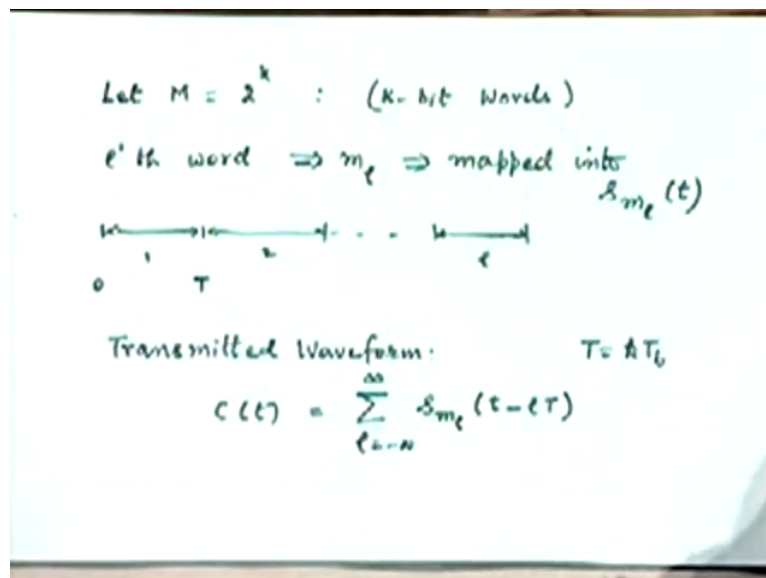 Let M = 2^k : (K-bit Words)
l'th word ⇒ m_l ⇒ mapped into
s_{m_l}(t)
1 2 . . . l
0 T
Transmitted Waveform: T = kT_b
c(t) = ∑_{l=-∞}^{∞} s_{m_l}(t-lT)